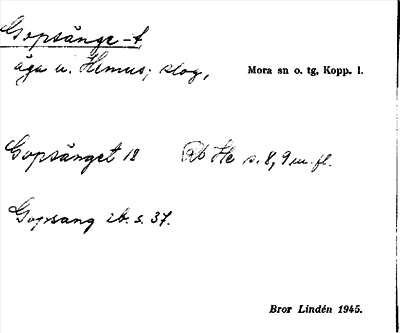 Gopsänge-t
äga u. Hemus; slog,
Mora sn o. tg, Kopp. l.
Gopsänget 18 Rb He s. 8, 9 m. fl.
Gopsang ib. s. 37.
Bror Lindén 1945.